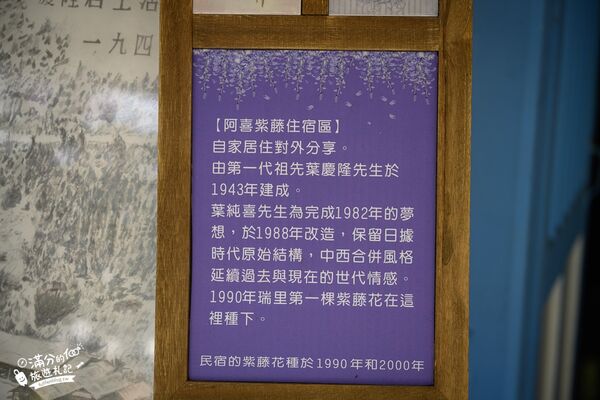 慶隆居生活
一九四
【阿喜紫藤住宿區】
自家居住對外分享。
由第一代祖先葉慶隆先生於
1943年建成。
葉純喜先生為完成1982年的夢
想，於1988年改造，保留日據
時代原始結構，中西合併風格
延續過去與現在的世代情感。
1990年瑞里第一棵紫藤花在這
裡種下。
民宿的紫藤花種於1990年和2000年
滿分的
旅遊札記